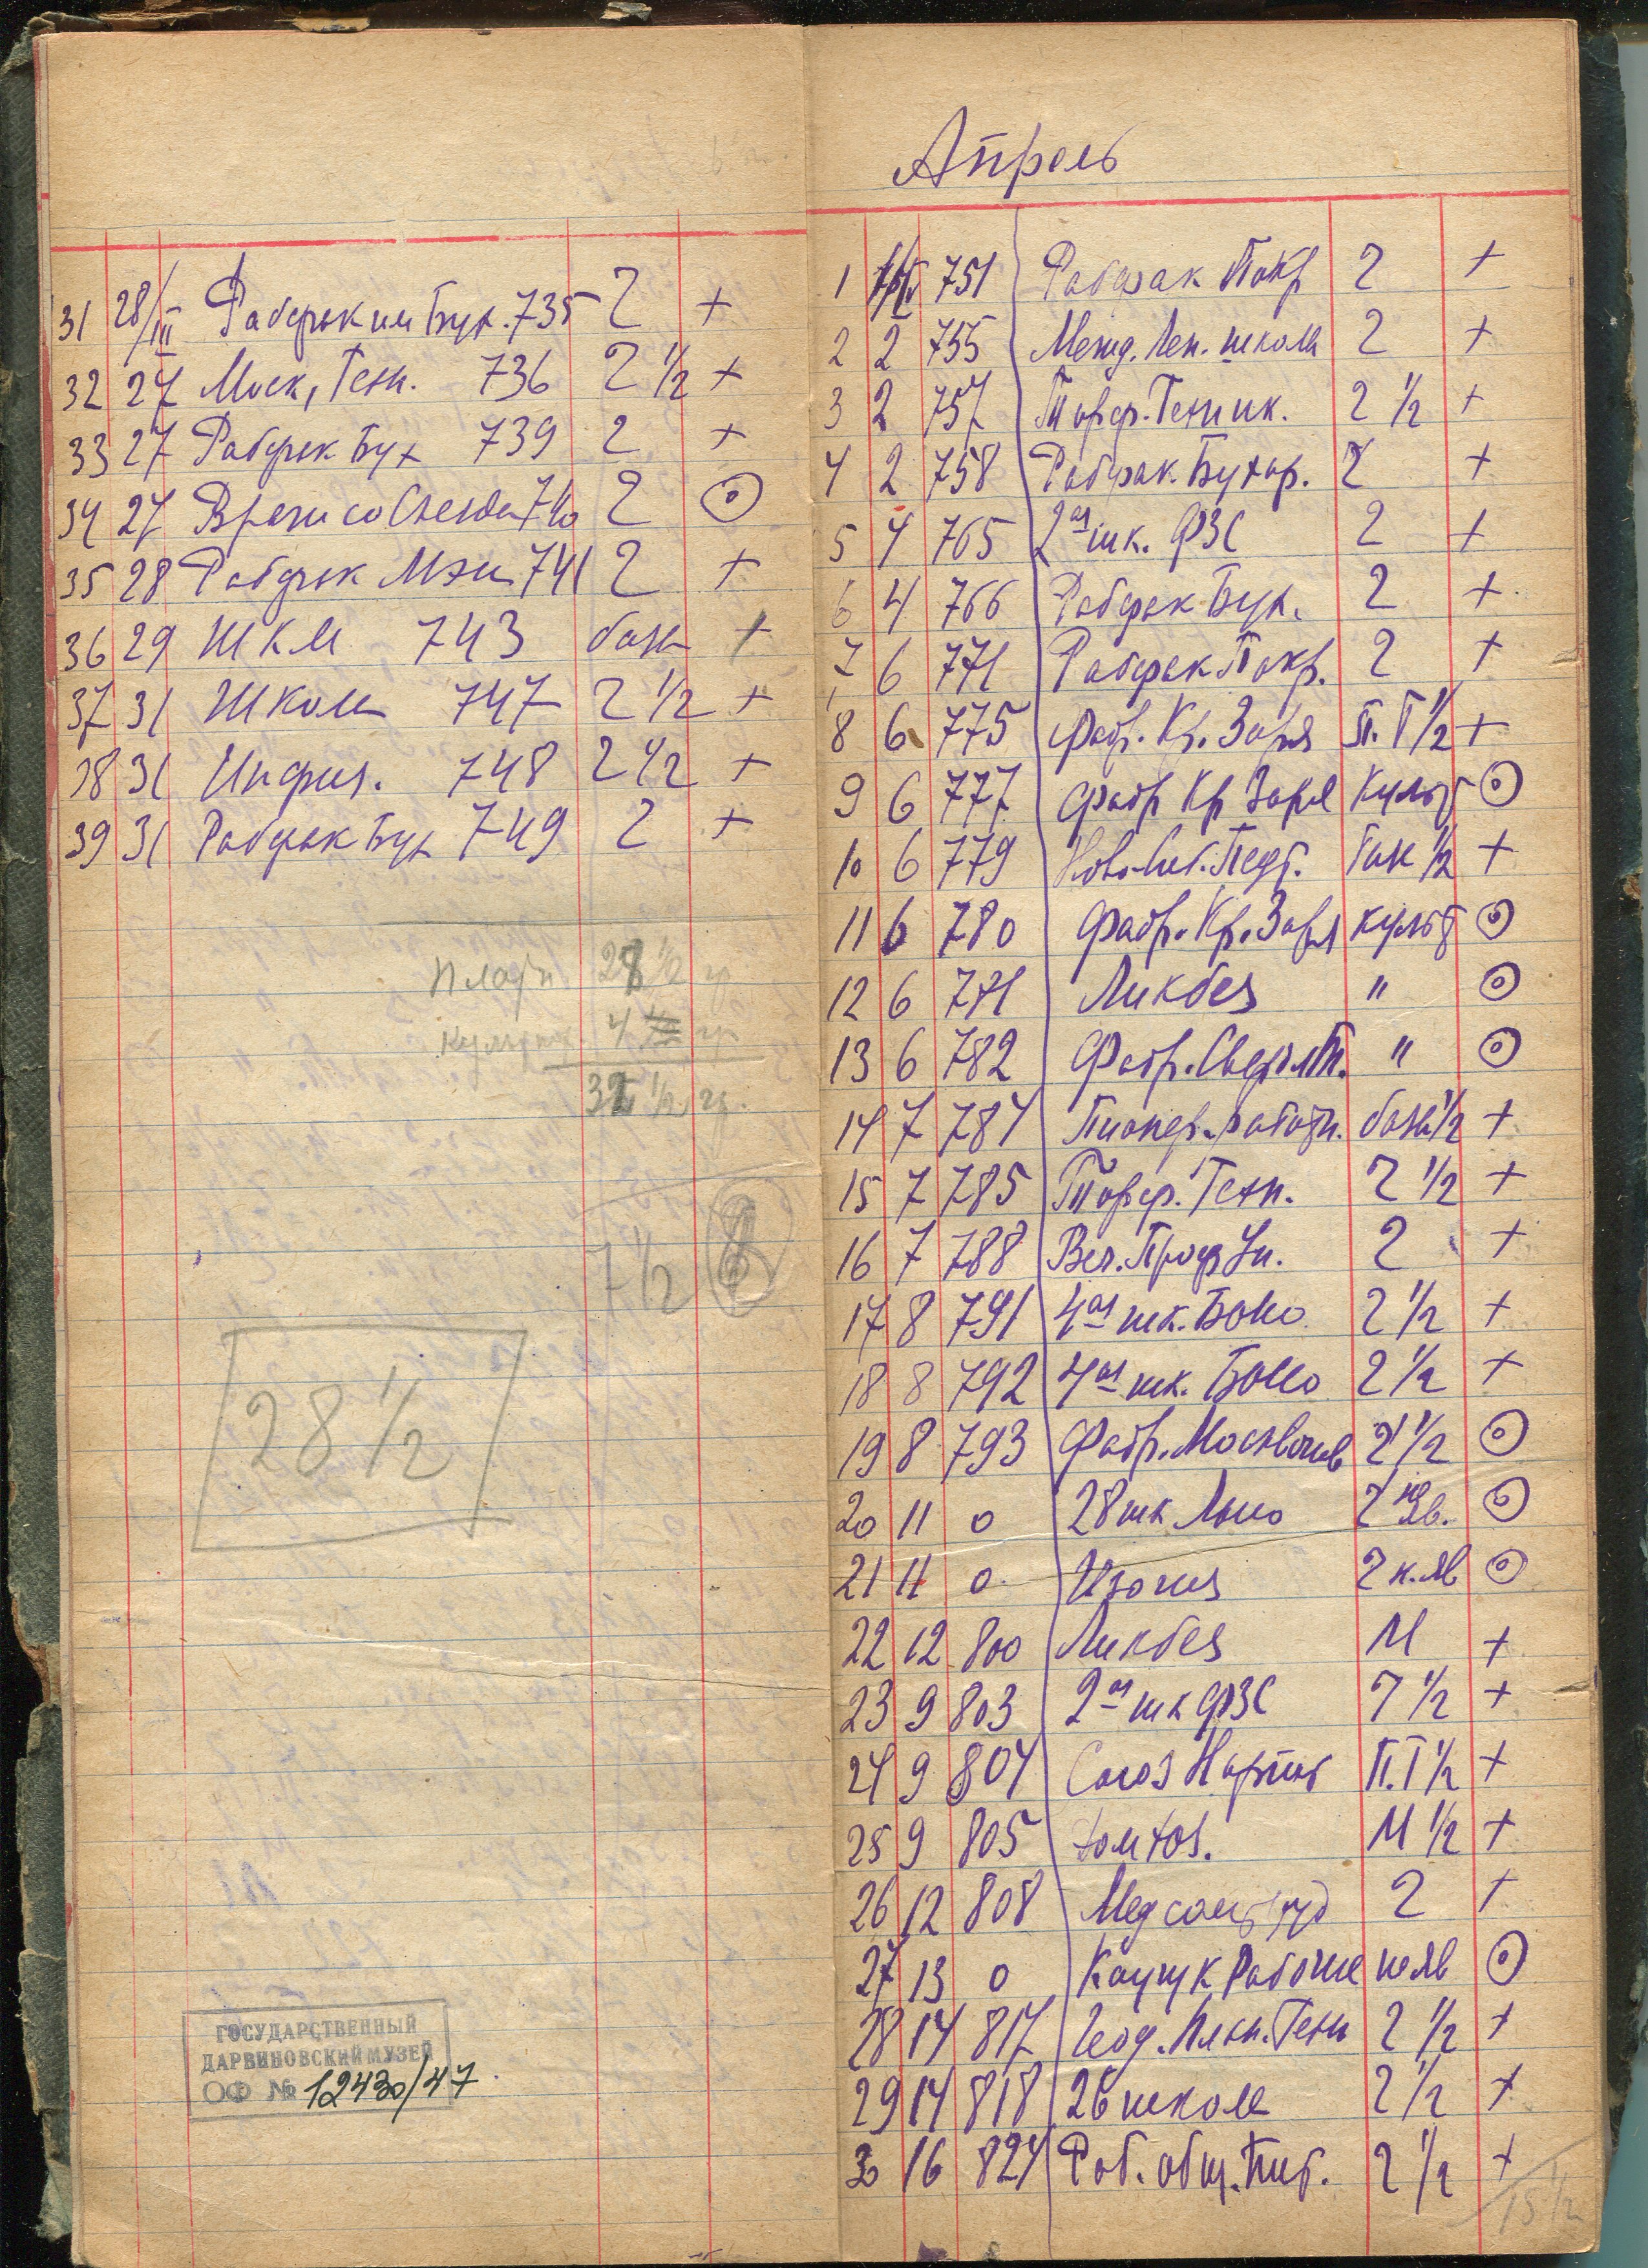 31 28/III Рабфак им Бух. 735 2 +
32 27 Моск, Техн. 736 2 1/2 +
33 27 Рабфак Бух 739 2 +
34 27 Врачи со Съезда 740 2 ⊙
35 28 Рабфак МЭИ 741 2 +
36 29 ШКМ 743 базы +
37 31 Школа 747 2 1/2 +
38 31 748 2 1/2 +
39 31 Рабфак Бух 749 2 +
Платн 28 1/2 гр
4 гр
32 1/2 гр.
7 1/2
28 1/2
ГОСУДАРСТВЕННЫЙ
ДАРВИНОВСКИЙ МУЗЕЙ
ОФ № 12430/47
Апрель
1 751 Рабфак Покр 2 +
2 2 755 Межд. Лен. школа 2 +
3 2 757 Торф. Техник. 2 1/2 +
4 2 758 Рабфак. Бухар. 2 +
5 4 765 2ая шк. ФЗС 2 +
6 4 766 Рабфак Бух. 2 +
7 6 771 Рабфак Покр. 2 +
8 6 775 Фабр. Кр. Заря П. Г 1/2 +
9 6 777 Фабр Кр Заря Культ ⊙
10 6 779 1/2 +
11 6 780 Фабр. Кр. Заря культ ⊙
12 6 771 Ликбез " ⊙
13 6 782 " ⊙
14 7 784 Пионер. работн. базы 1/2 +
15 7 785 Торф. Техн. 2 1/2 +
16 7 788 Веч. Проф Ун. 2 +
17 8 791 4ая шк. БОНО 2 1/2 +
18 8 792 4ая шк. БОНО 2 1/2 +
19 8 793 Фабр. Москвошв 2 1/2 ⊙
20 11 0 28 шк 2 ⊙
21 11 0 2 н. яв ⊙
22 12 800 Ликбез М +
23 9 803 2ая шк ФЗС 2 1/2 +
24 9 804 Союз Нарпит П. Г 1/2 +
25 9 805 М 1/2 +
26 12 808 Медсантруд 2 +
27 13 0 Каучук Рабочие не яв ⊙
28 14 817 Геод. Техн 2 1/2 +
29 14 818 26 школа 2 1/2 +
30 16 824 Раб. общ. Пит. 2 1/2 +
15 1/2